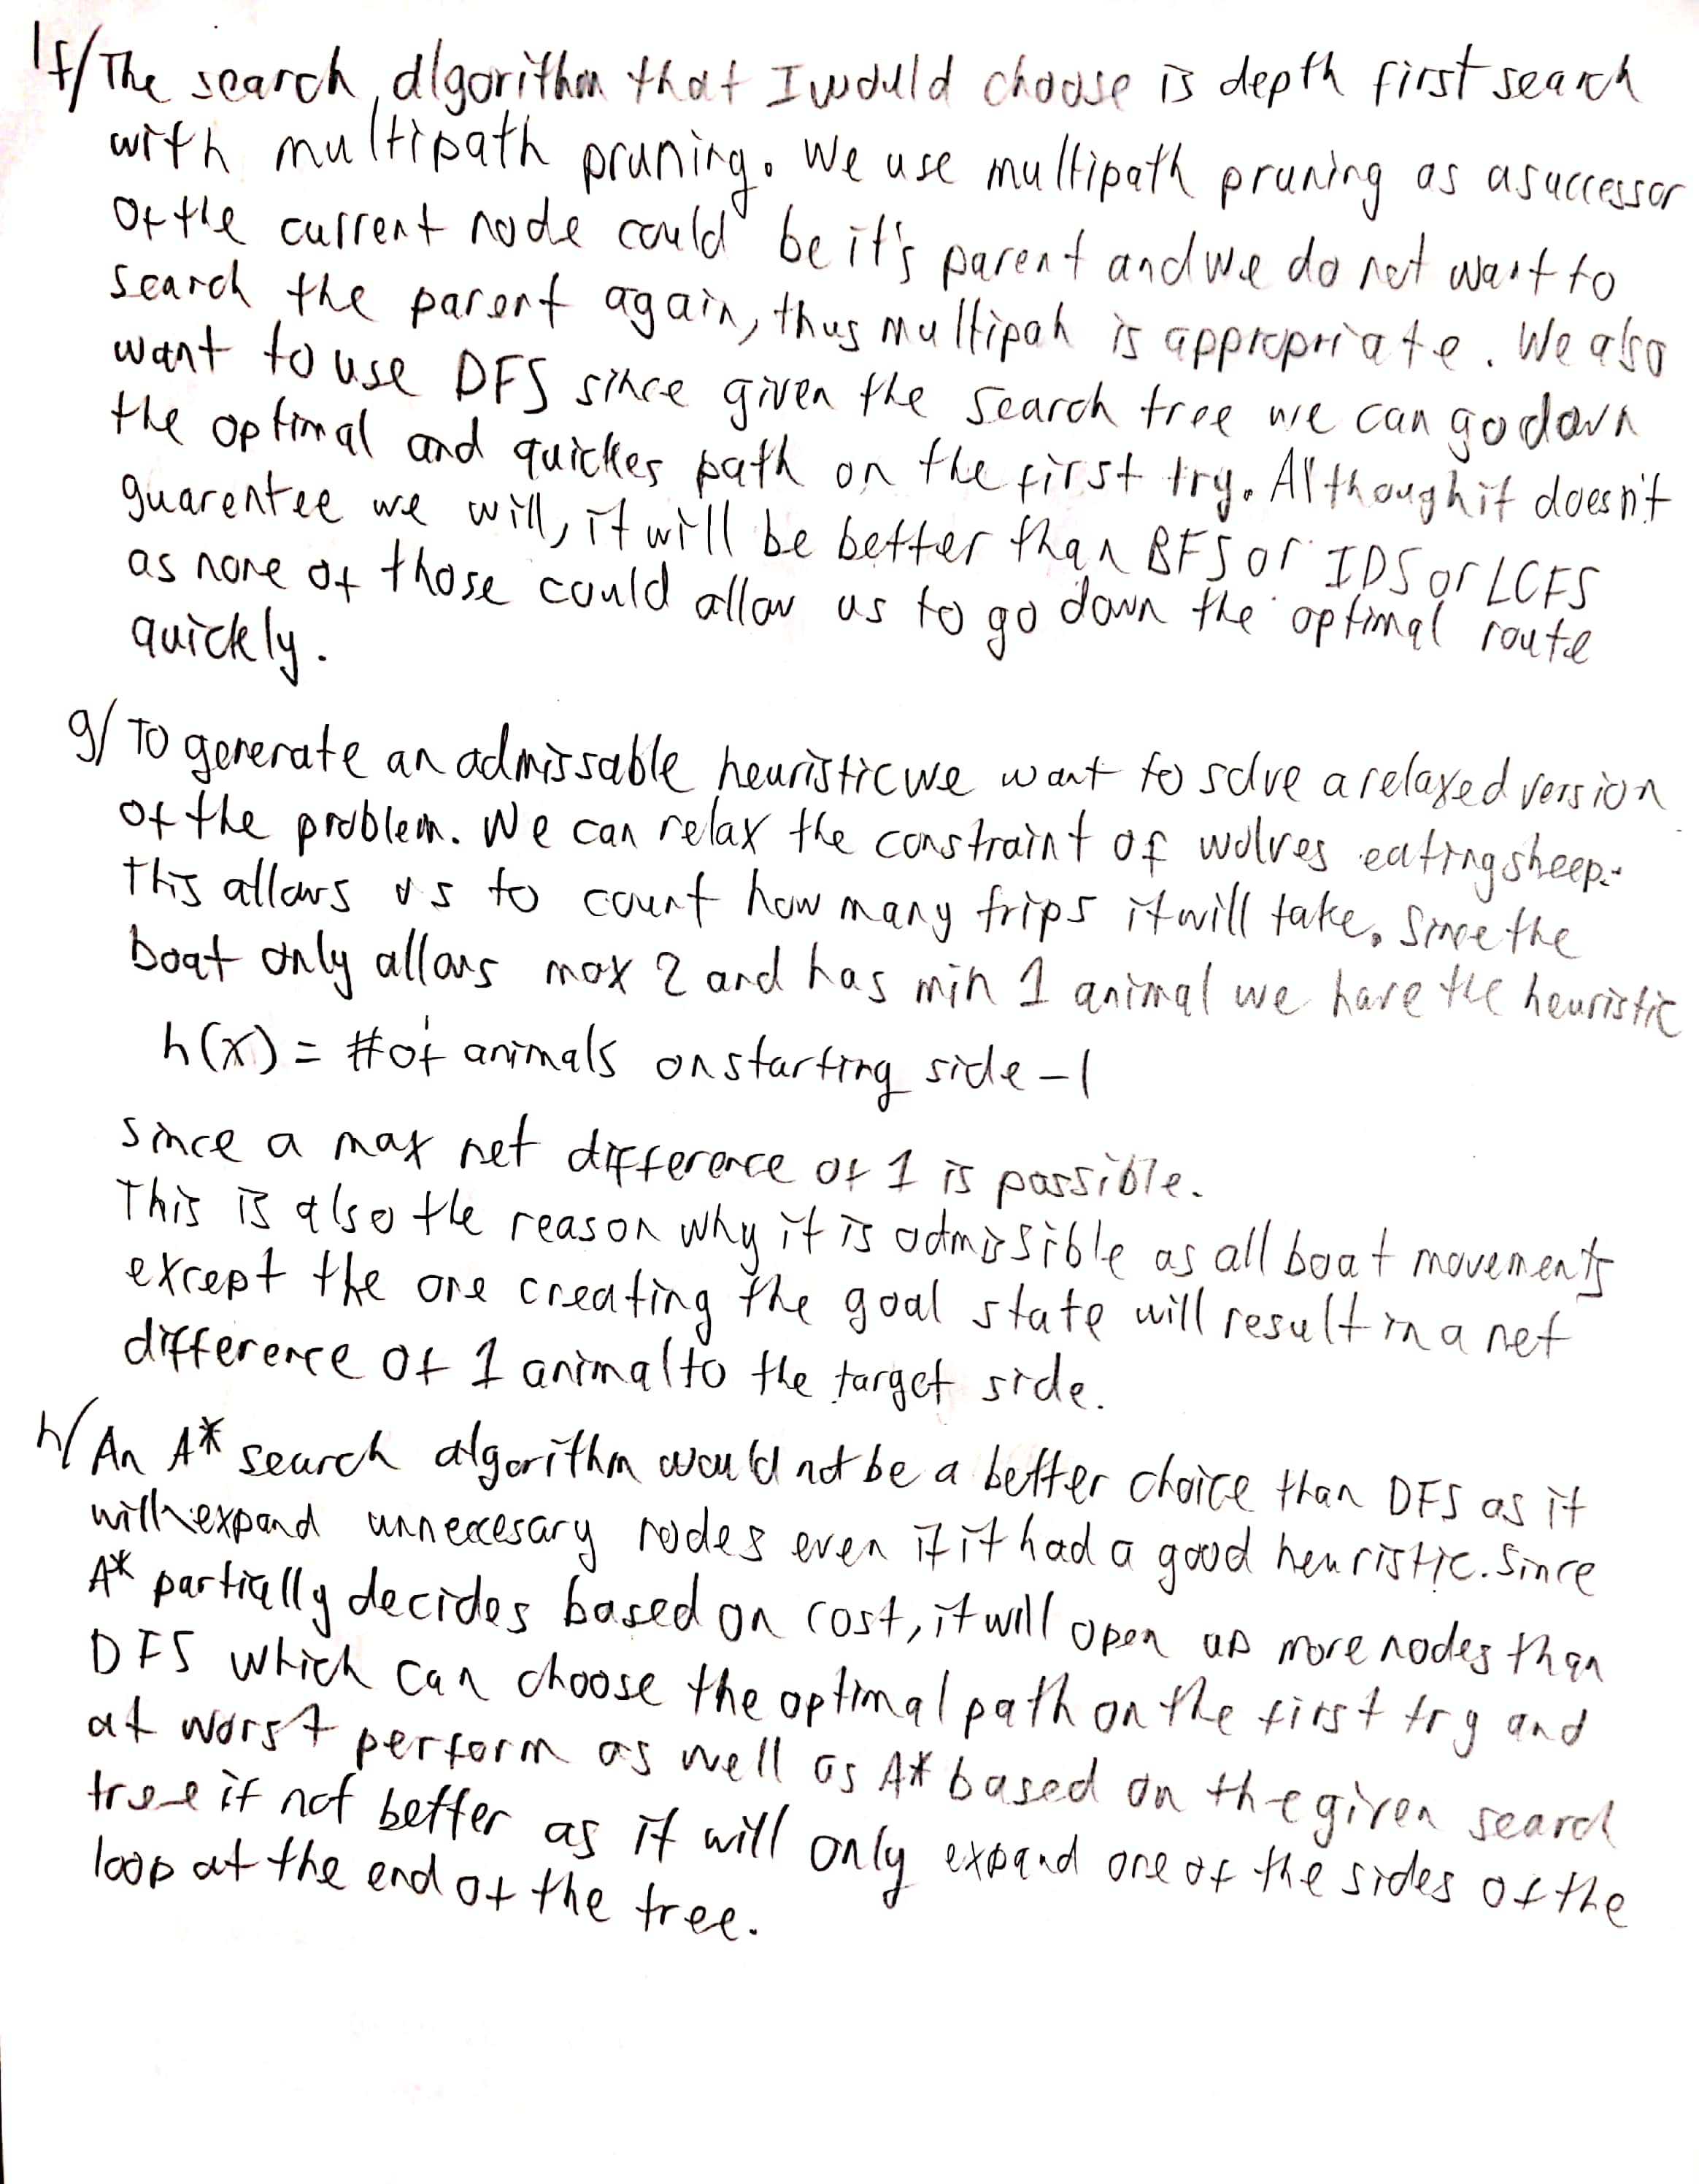 1f/ The search algorithm that I would choose is depth first search
with multipath pruning. We use multipath pruning as a successor
of the current node could be it's parent and we do not want to
search the parent again, thus multipah is appropriate. We also
want to use DFS since given the search tree we can go down
the optimal and quickes path on the first try. Although it doesn't
guarentee we will, it will be better than BFS or IDS or LCFS
as none of those could allow us to go down the optimal route
quickly.
g/ To generate an admissable heuristic we want to solve a relaxed version
of the problem. We can relax the constraint of wolves eating sheep.
This allows us to count how many trips it will take. Since the
boat only allows max 2 and has min 1 animal we have the heuristic
h(x) = # of animals on starting side - 1
since a max net difference of 1 is possible.
This is also the reason why it is admissible as all boat movements
except the one creating the goal state will result in a net
difference of 1 animal to the target side.
h/ An A* search algorithm would not be a better choice than DFS as it
will expand unneccesary nodes even if it had a good heuristic. Since
A* partially decides based on cost, it will open up more nodes than
DFS which can choose the optimal path on the first try and
at worst perform as well as A* based on the given search
tree if not better as it will only expand one of the sides of the
loop at the end of the tree.